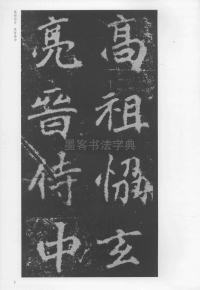 高祖懰玄
亮晉侍中
墨客书法字典